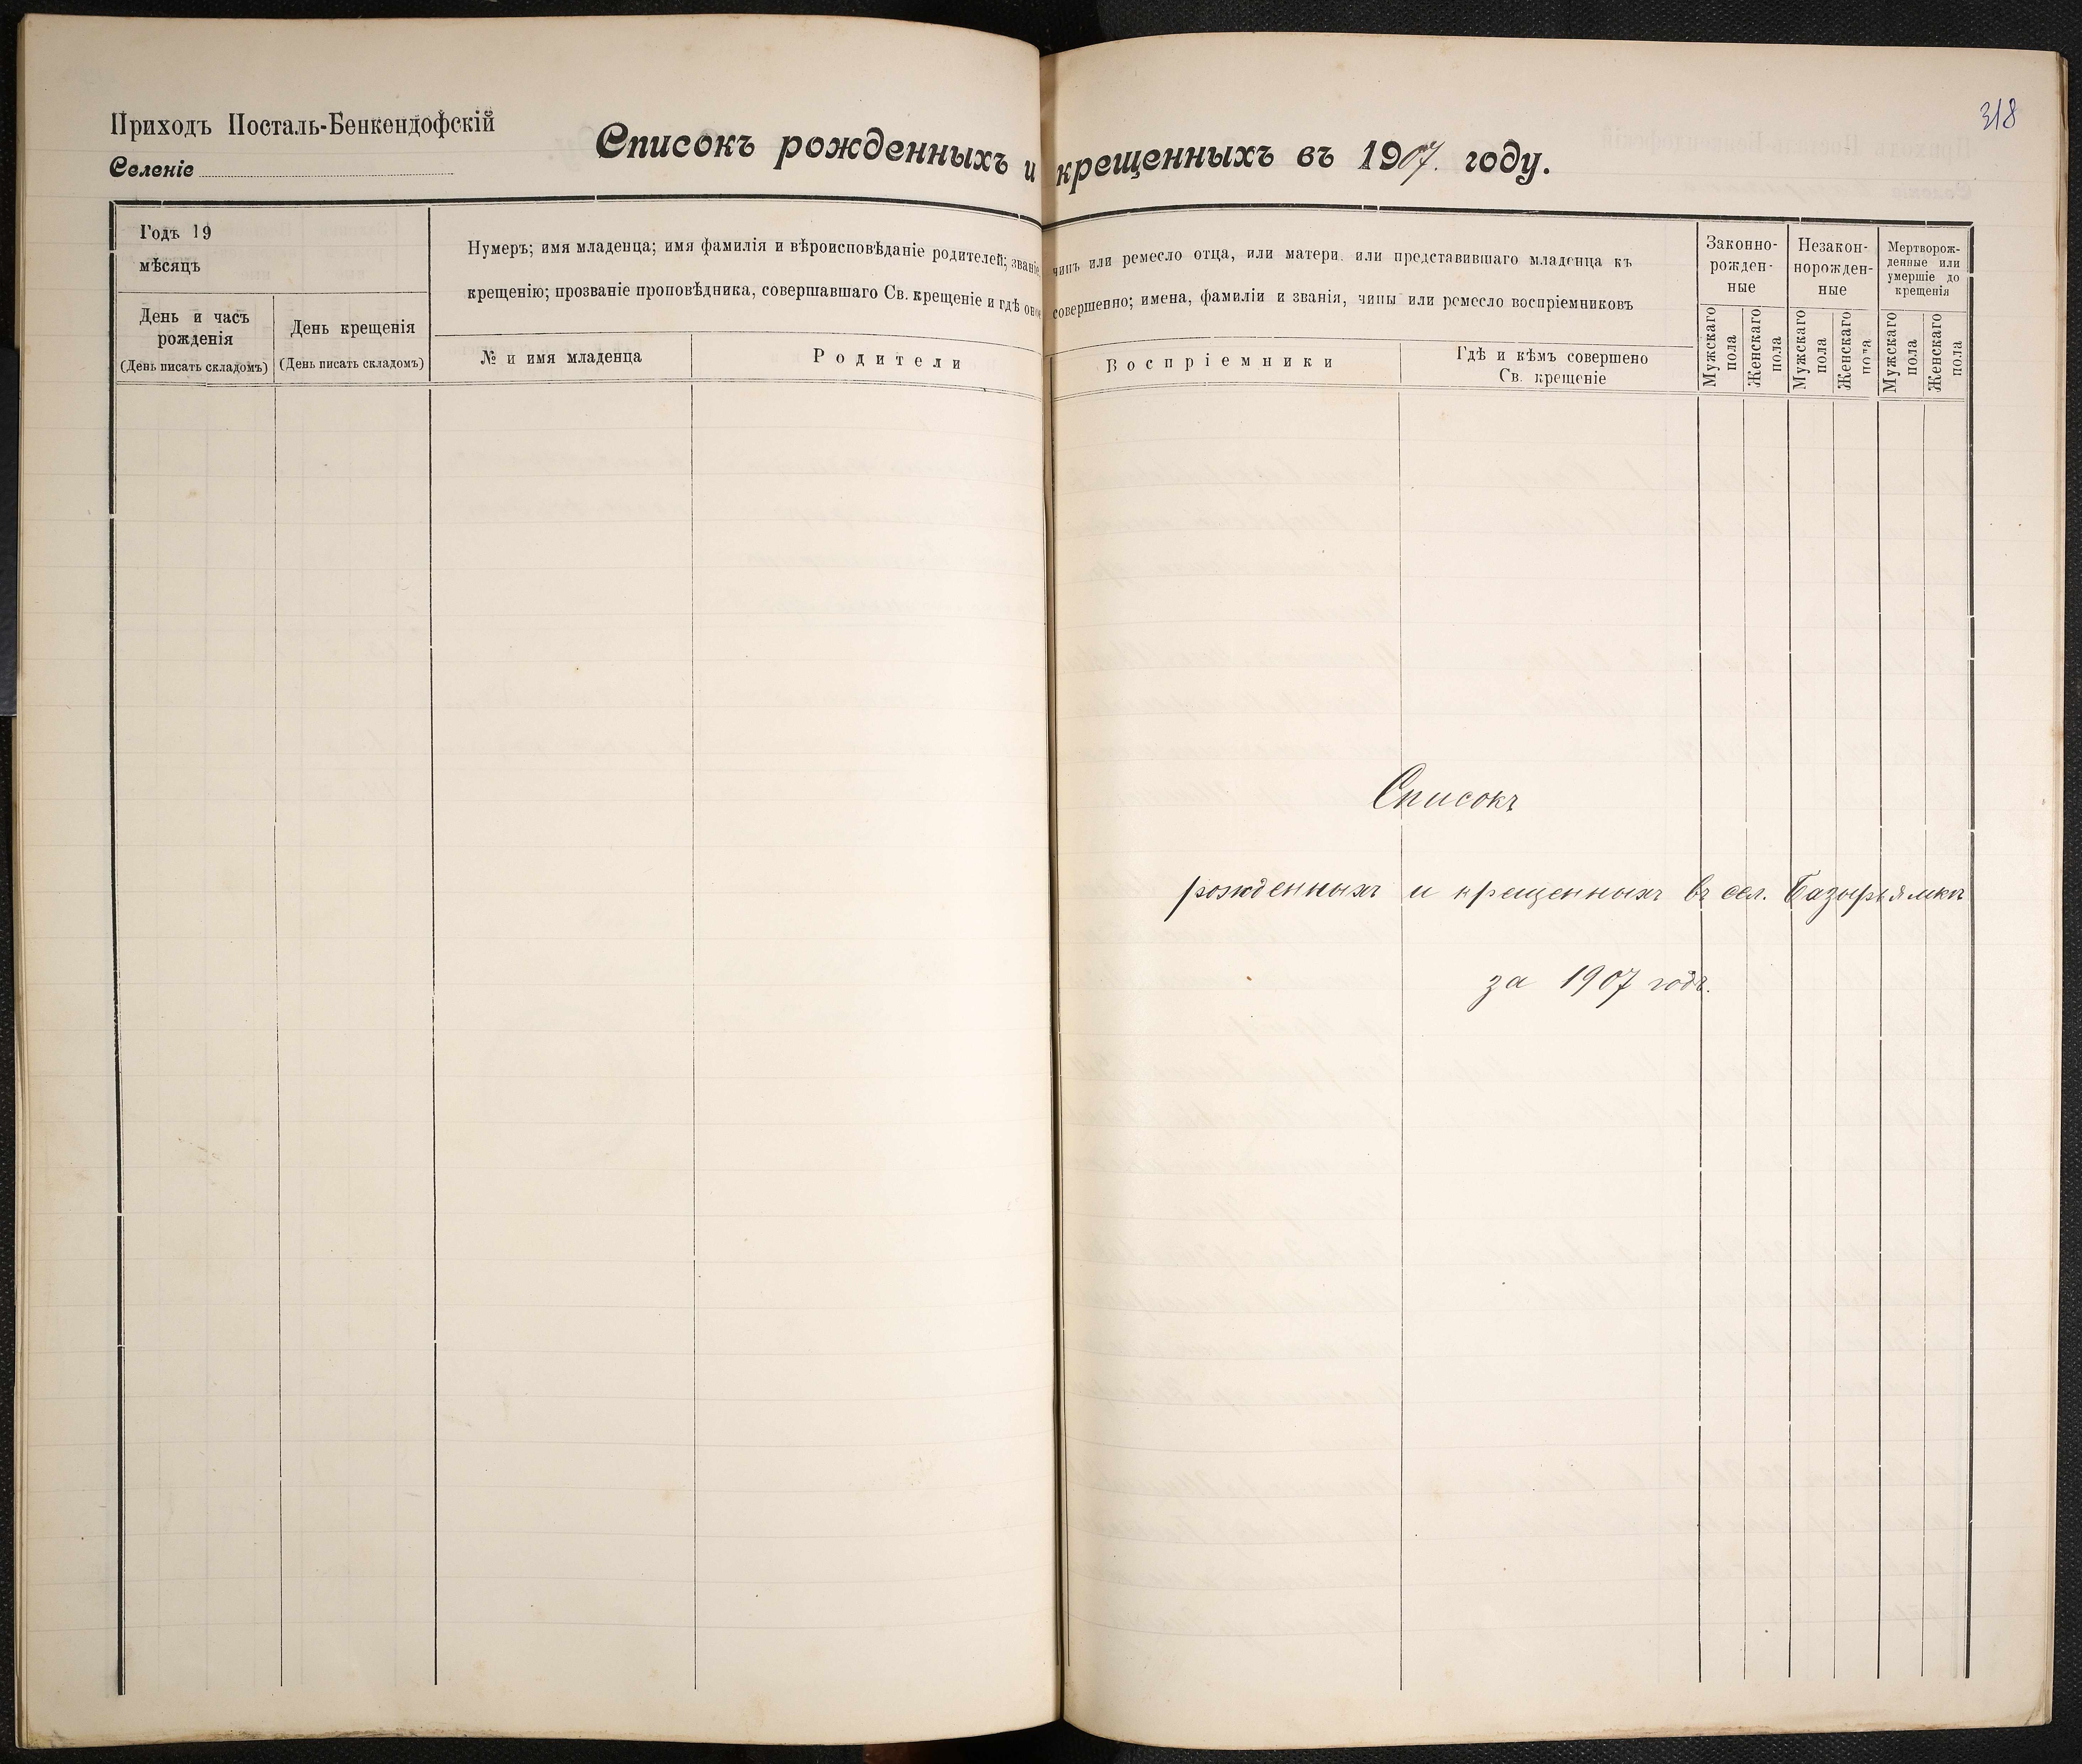 318
Приходъ Посталь-Бенкендофскій
Селеніе
Списокъ рожденныхъ и крещенныхъ въ 1907. году.
Годъ 19
мѣсяцъ
День и часъ
рожденія
(День писать складомъ)
День крещенія
(День писать складомъ)
Нумеръ; имя младенца; имя фамилія и вѣроисповѣданіе родителей; званіе, чинъ или ремесло отца, или матери или представившаго младенца къ
крещенію; прозваніе проповѣдника, совершавшаго Св. крещеніе и гдѣ оное совершенно; имена, фамиліи и званія, чины или ремесло воспріемниковъ
№ и имя младенца
Родители
Воспріемники
Гдѣ и кѣмъ совершено
Св. крещеніе
Законно-
рожден-
ные
Незакон-
норожден-
ные
Мертворож-
денные или
умершіе до
крещенія
Мужскаго
пола
Женскаго
пола
Мужскаго
пола
Женскаго
пола
Мужскаго
пола
Женскаго
пола
Списокъ
рожденныхъ и крещенныхъ въ сел. Базырьямкѣ
за 1907 годъ.